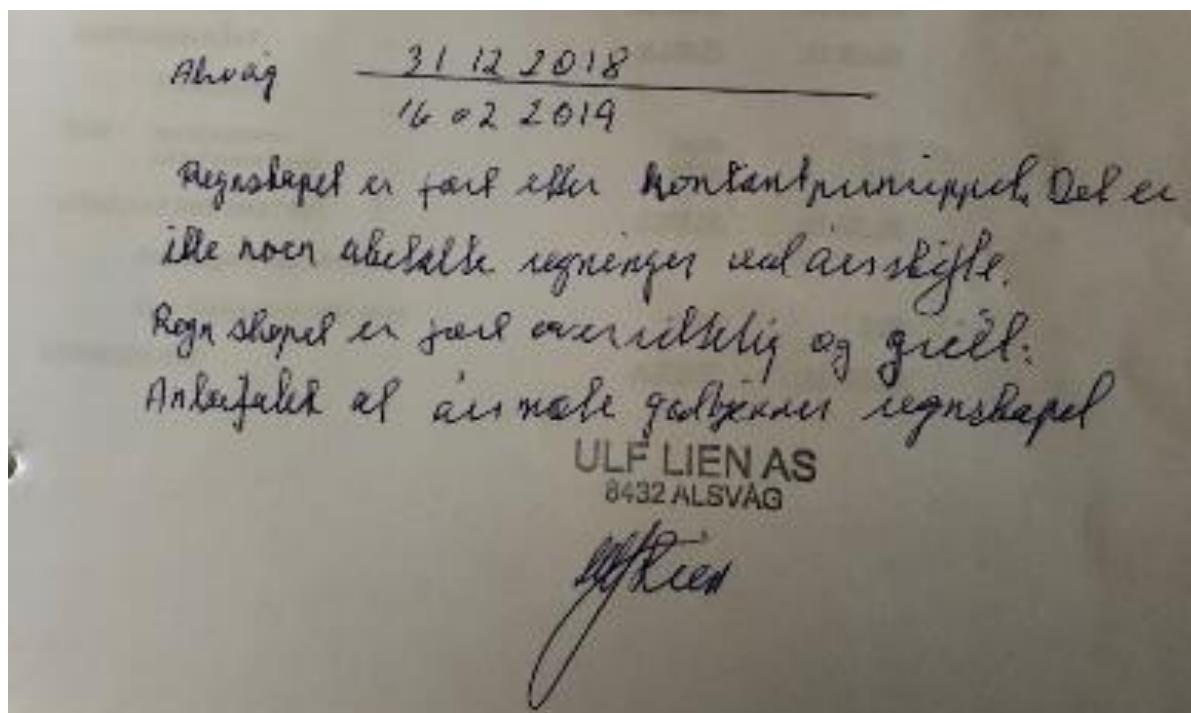 Alsvåg 31 12 2018
16 02 2019
Regnskapet er ført etter Kontantprinsippet. Det er
ikke noen ubetalte regninger ved årsskifte.
Regnskapet er ført oversiktelig og greit.
Anbefaler at årsmøte godkjenner regnskapet
ULF LIEN AS
8432 ALSVÅG
Ulf Lien